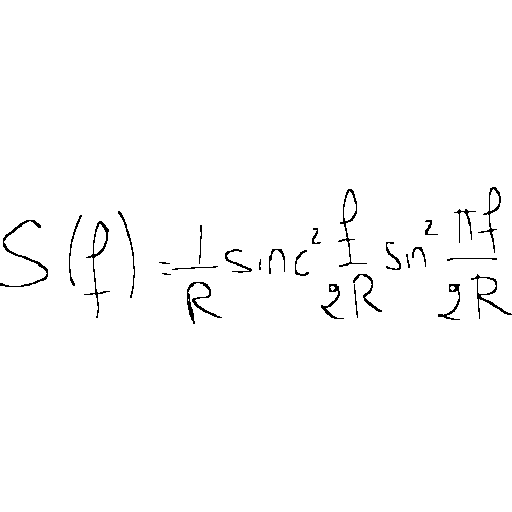 S(f) = \frac{1}{R} sinc^2 \frac{f}{2R} sin^2 \frac{\pi f}{2R}